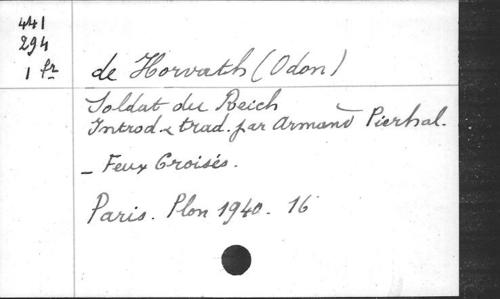 441
294
1 fr
de Horvath (Odon)
Soldat du Reich
Introd. & trad. par Armand Pierhal.
_ Feux Croisés.
Paris. Plon 1940. 16